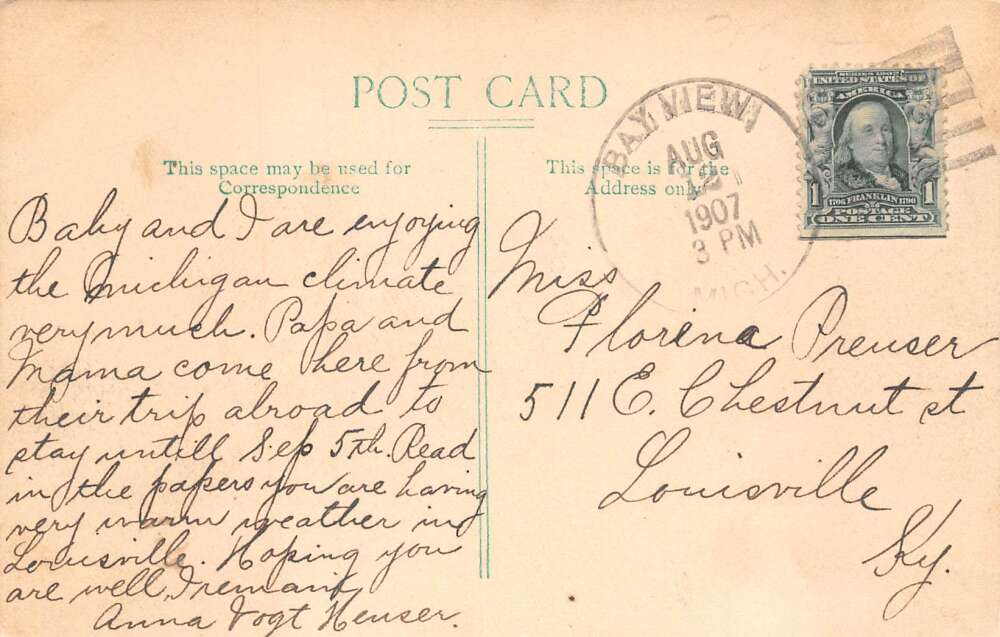 POST CARD
This space may be used for
Correspondence
This space is for the
Address only
BAY VIEW,
AUG
12
1907
3 PM
MICH.
SERIES 1902
UNITED STATES OF
AMERICA
1 1
1706 FRANKLIN 1790
POSTAGE
ONE CENT
Baby and I are enjoying
the Michigan climate
very much. Papa and
Mama come here from
their trip abroad to
stay untill Sep 5th. Read
in the papers you are having
very warm weather in
Louisville. Hoping you
are well, I remain,
Anna Vogt Heuser.
Miss
Florena Preuser
511 E. Chestnut st
Louisville
Ky.